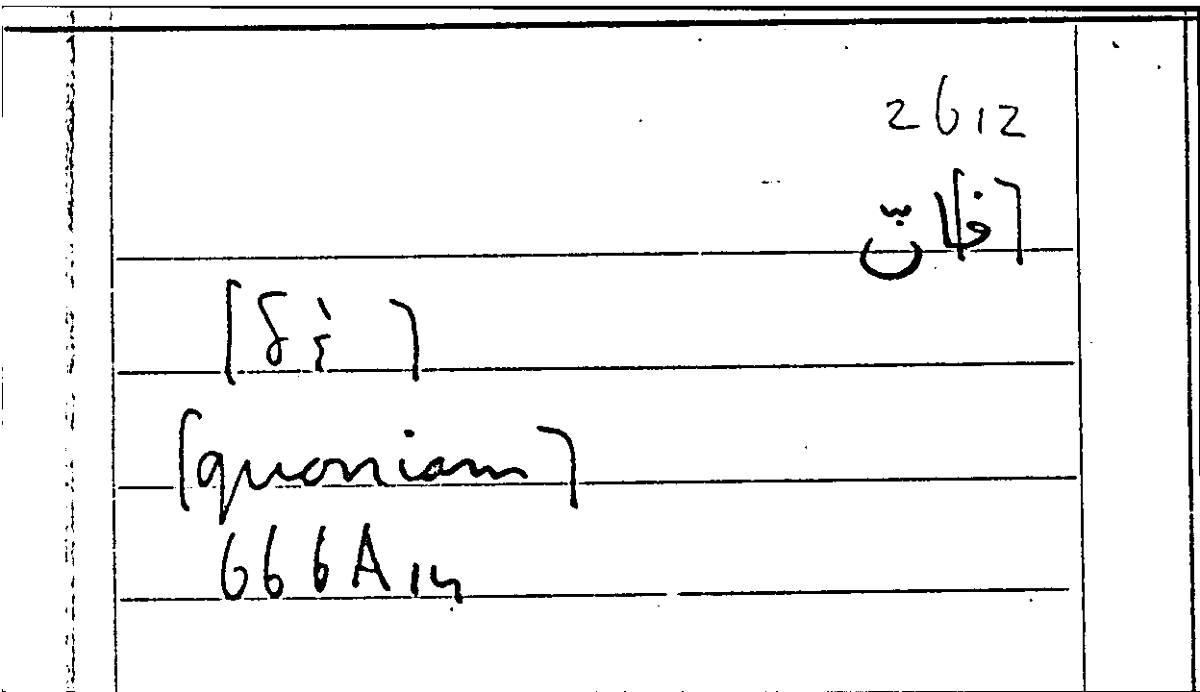 26,12
[ف]انّ
[δὲ]
[quoniam]
666A14